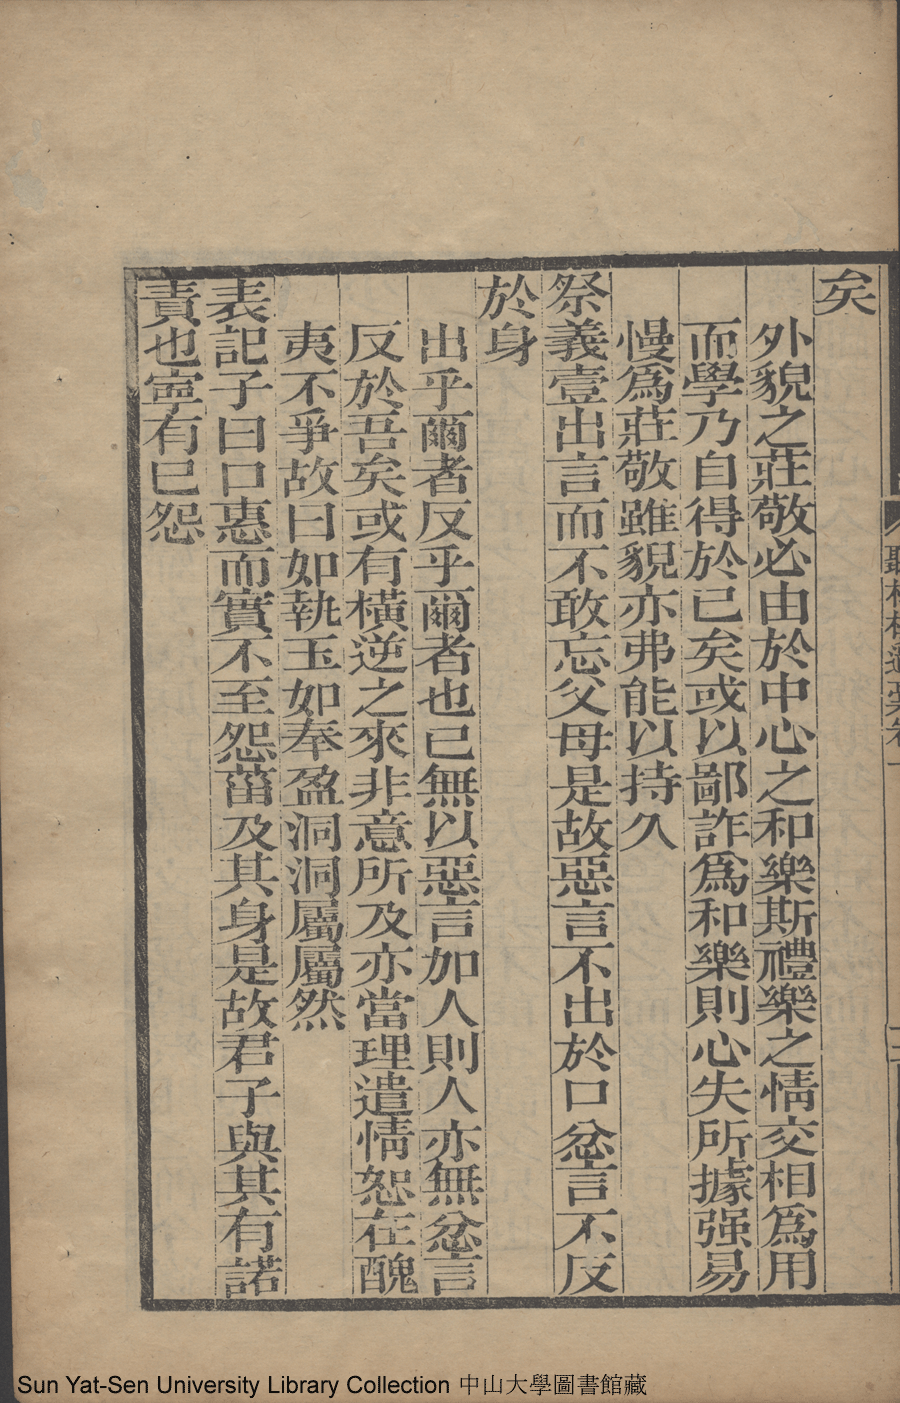 矣
外貌之莊敬必由於中心之和樂斯禮樂之情交相爲用
而學乃自得於已矣或以鄙詐爲和樂則心失所據强易
慢爲莊敬雖貌亦弗能以持久
祭義壹出言而不敢忘父母是故惡言不出於口忿言不反
於身
出乎爾者反乎爾者也已無以惡言加人則人亦無忿言
反於吾矣或有橫逆之來非意所及亦當理遣情恕在醜
夷不爭故曰如執玉如奉盈洞洞屬屬然
表記子曰口惠而實不至怨菑及其身是故君子與其有諾
責也寍有已怨
Sun Yat-Sen University Library Collection 中山大學圖書館藏